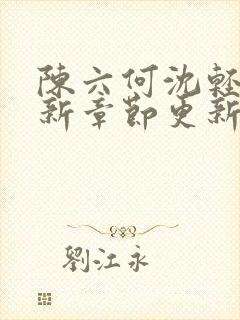 陳六何沈輕
新章節更新
劉江永